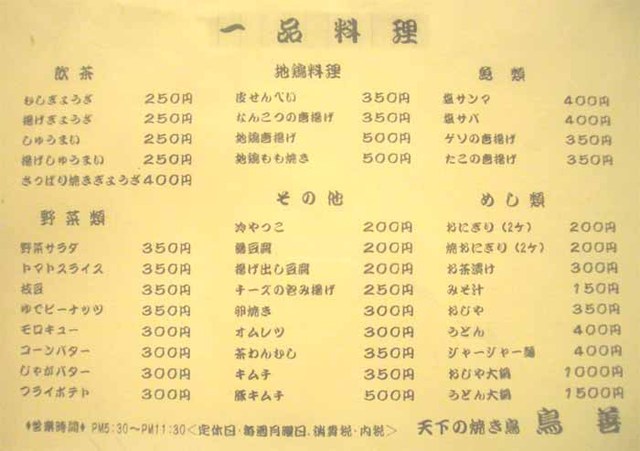 一品料理
飲茶
むしぎょうざ 250円
揚げぎょうざ 250円
しゅうまい 250円
揚げしゅうまい 250円
さっぱり焼きぎょうざ 400円
野菜類
野菜サラダ 350円
トマトスライス 350円
枝豆 350円
ゆでピーナッツ 350円
モロキュー 300円
コーンバター 300円
じゃがバター 300円
フライポテト 300円
地鶏料理
皮せんべい 350円
なんこつの唐揚げ 350円
地鶏唐揚げ 500円
地鶏もも焼き 500円
その他
冷やっこ 200円
湯豆腐 200円
揚げ出し豆腐 200円
チーズの包み揚げ 250円
卵焼き 300円
オムレツ 300円
茶わんむし 350円
キムチ 350円
豚キムチ 500円
魚類
塩サンマ 400円
塩サバ 400円
ゲソの唐揚げ 350円
たこの唐揚げ 350円
めし類
おにぎり(2ケ) 200円
焼おにぎり(2ケ) 200円
お茶漬け 300円
みそ汁 150円
おじや 350円
うどん 400円
ジャージャー麺 400円
おじや大鍋 1000円
うどん大鍋 1500円
*営業時間* PM5:30~PM11:30<定休日・毎週月曜日、消費税・内税>
天下の焼き鳥 鳥善